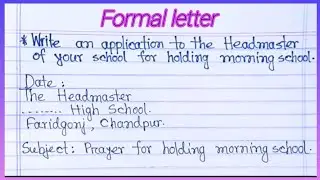 Formal letter
* Write an application to the Headmaster
of your school for holding morning school.
Date :
The Headmaster
......... High School.
Faridgonj, Chandpur.
Subject: Prayer for holding morning school.